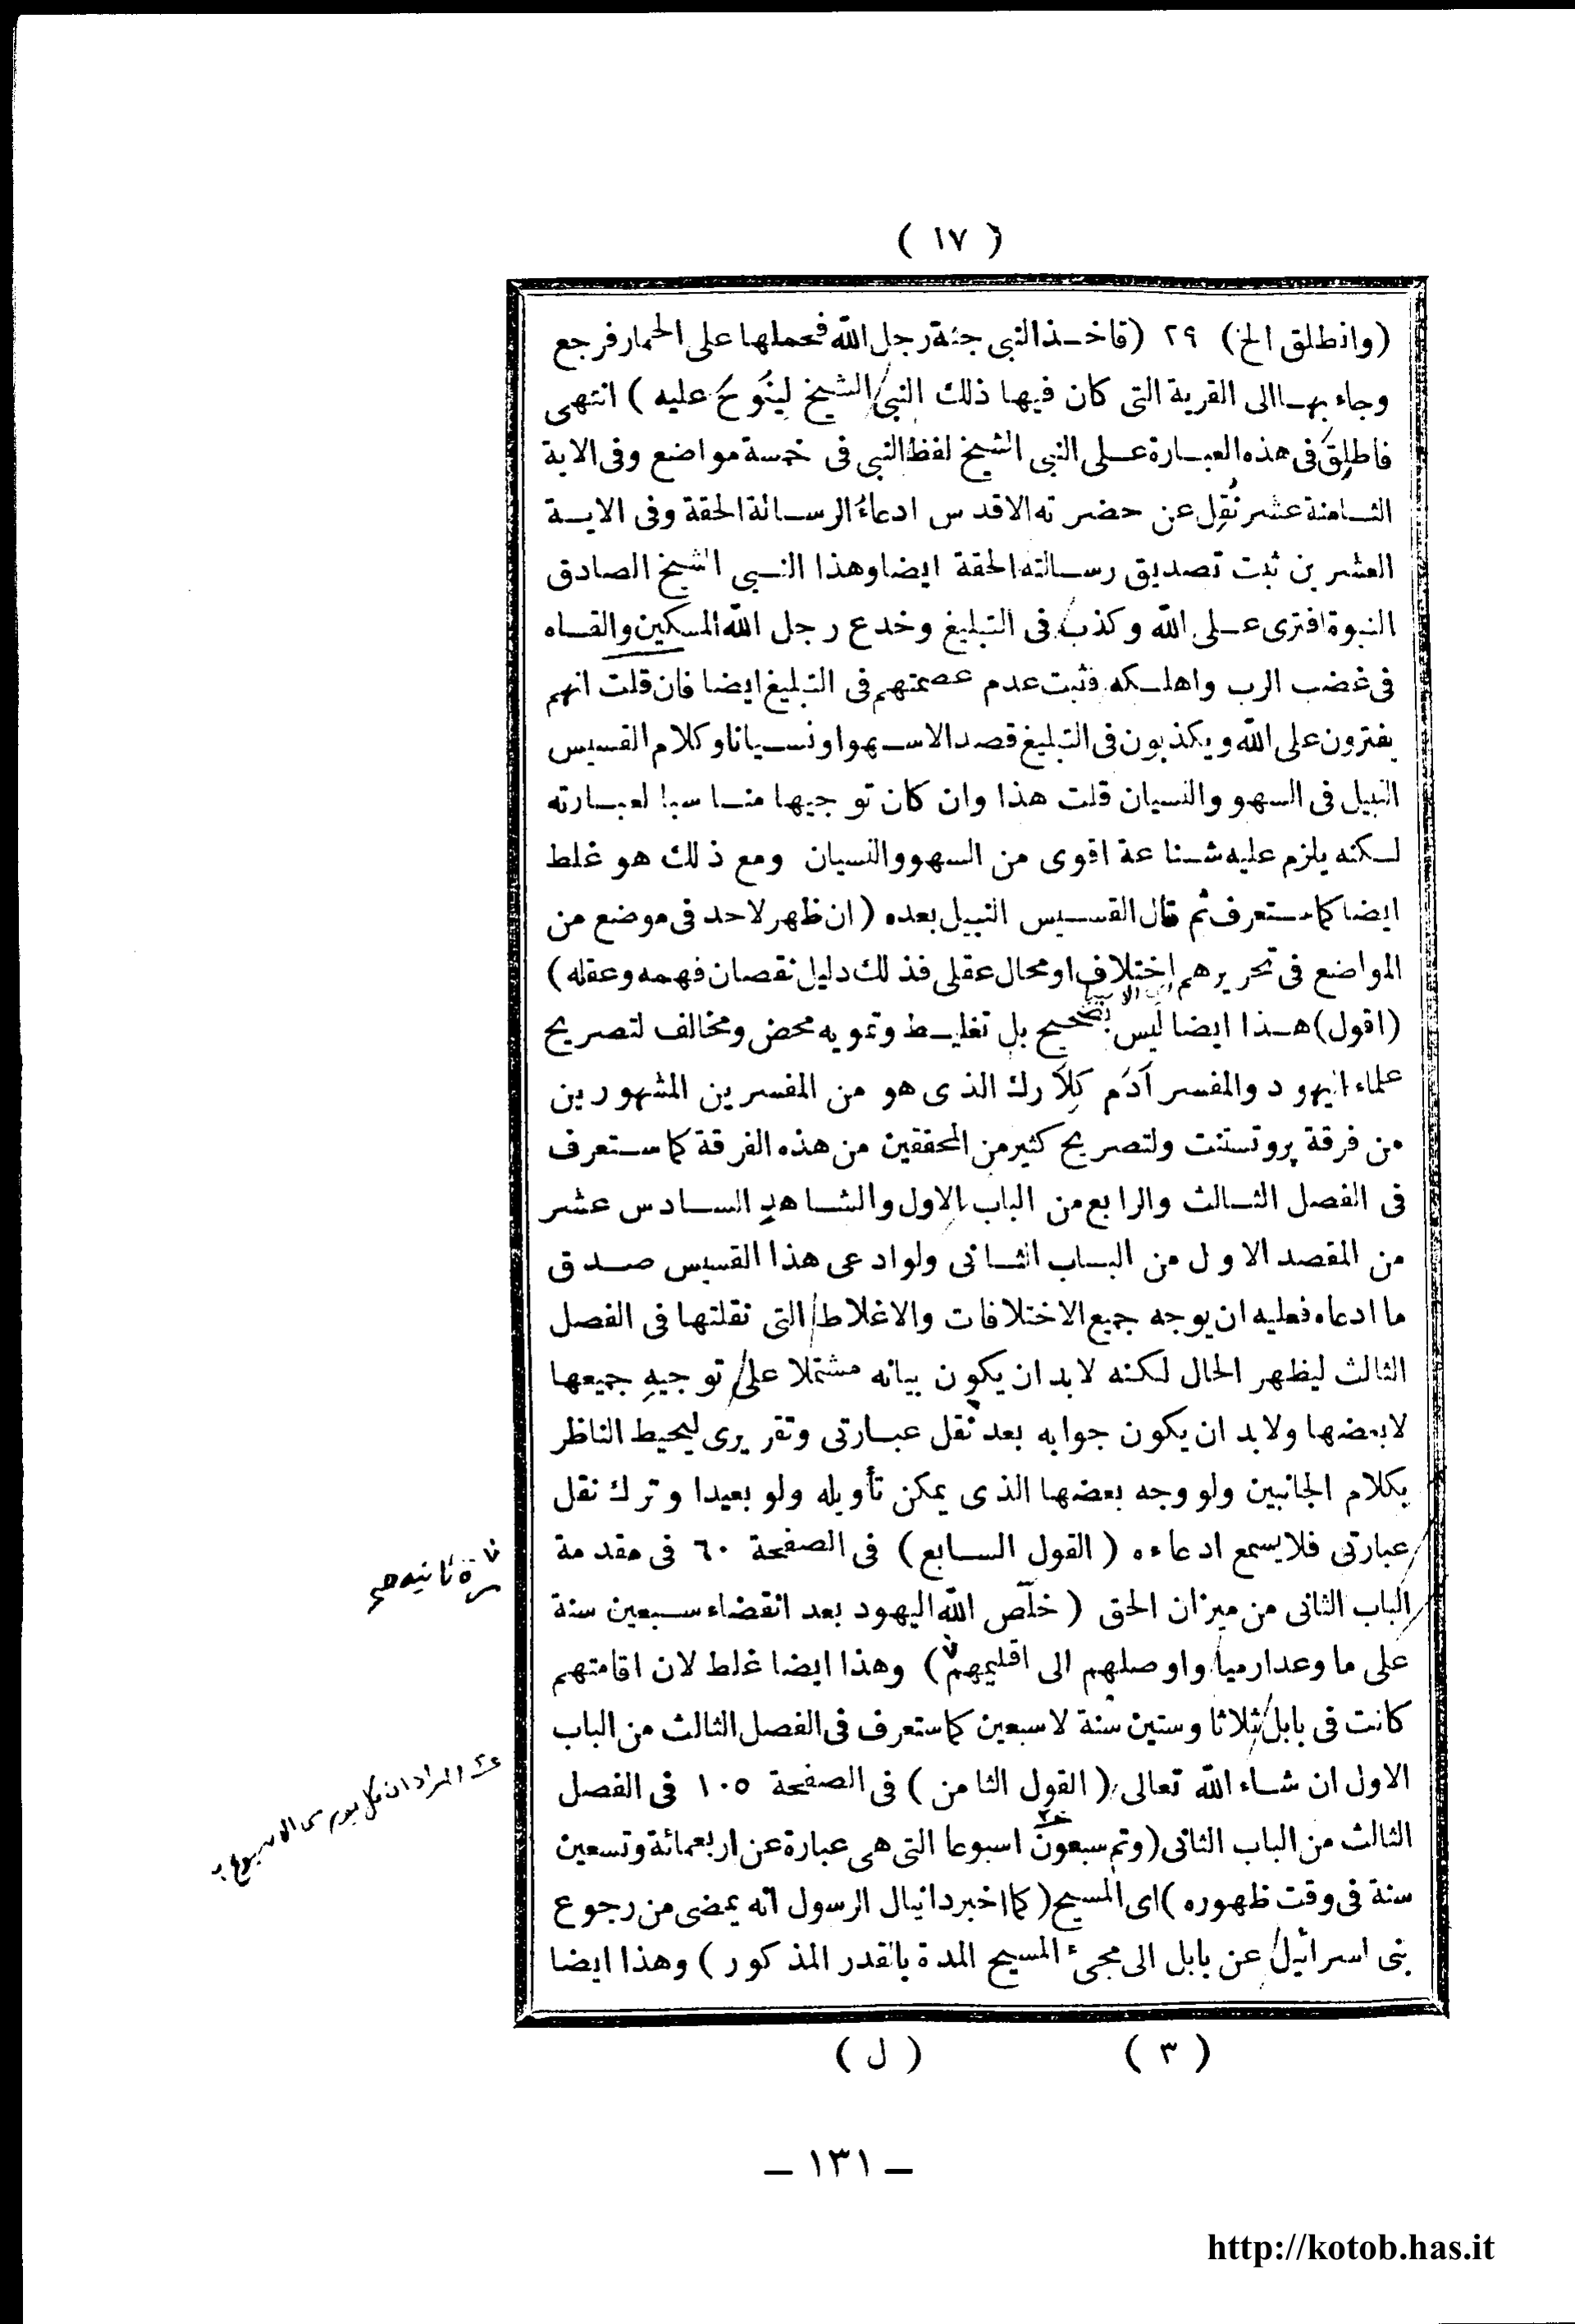 ( ١٧ )
(وانطلق الخ) ٢٩ (فاخذ النبى جثة رجل الله فحملها على الحمار فرجع
وجاء بها الى القرية التى كان فيها ذلك النبى الشيخ لينوح عليه) انتهى
فاطلق فى هذه العبارة على النبى الشيخ لفظ النبى فى خمسة مواضع وفى الاية
الثامنة عشر نُقِل عن حضرته الاقدس ادعاءُ الرسالة الحقة وفى الاية
العشرين ثبت تصديق رسالته الحقة ايضا وهذا النبى الشيخ الصادق
النبوة افترى على الله وكذب فى التبليغ وخدع رجل الله المسكين والقاه
فى غضب الرب واهلكه فثبت عدم عصمتهم فى التبليغ ايضا فان قلت انهم
يفترون على الله ويكذبون فى التبليغ قصدا لا سهوا ونسيانا وكلام القسيس
النبيل فى السهو والنسيان قلت هذا وان كان توجيها مناسبا لعبارته
لكنه يلزم عليه شناعة اقوى من السهو والنسيان ومع ذلك هو غلط
ايضا كما ستعرف ثم قال القسيس النبيل بعده (ان ظهر لاحد فى موضع من
المواضع فى تحريرهم اختلاف او محال عقلى فذلك دليل نقصان فهمه وعقله)
(اقول) هذا ايضا ليس بصحيح بل تغليط وتمويه محض ومخالف لتصريح
علماء اليهود والمفسر آدَم كِلاَرك الذى هو من المفسرين المشهورين
من فرقة پروتستنت ولتصريح كثير من المحققين من هذه الفرقة كما ستعرف
فى الفصل الثالث والرابع من الباب الاول والشاهد السادس عشر
من المقصد الاول من الباب الثانى ولو ادعى هذا القسيس صدق
ما ادعاه فعليه ان يوجه جميع الاختلافات والاغلاط التى نقلتها فى الفصل
الثالث ليظهر الحال لكنه لا بد ان يكون بيانه مشتملا على توجيهِ جميعها
لا بعضها ولا بد ان يكون جوابه بعد نقل عبارتى وتقريرى ليحيط الناظر
بكلام الجانبين ولو وجه بعضها الذى يمكن تأويله ولو بعيدا وترك نقل
عبارتى فلا يسمع ادعاءه (القول السابع) فى الصفحة ٦٠ فى مقدمة
الباب الثانى من ميزان الحق (خلّص الله اليهود بعد انقضاء سبعين سنة
على ما وعد ارميا واوصلهم الى اقليمهم) وهذا ايضا غلط لان اقامتهم
كانت فى بابل ثلاثا وستين سنة لا سبعين كما ستعرف فى الفصل الثالث من الباب
الاول ان شاء الله تعالى (القول الثامن) فى الصفحة ١٠٥ فى الفصل
الثالث من الباب الثانى (وتم سبعون اسبوعا التى هى عبارة عن اربعمائة وتسعين
سنة فى وقت ظهوره) اى المسيح (كما اخبر دانيال الرسول انه يمضى من رجوع
بنى اسرائيل عن بابل الى مجىء المسيح المدة بالقدر المذكور) وهذا ايضا
مرة ثانية صح
المراد ان كل يوم من الاسبوع
( ٣ ) ( ل )
— ١٣١ —
http://kotob.has.it